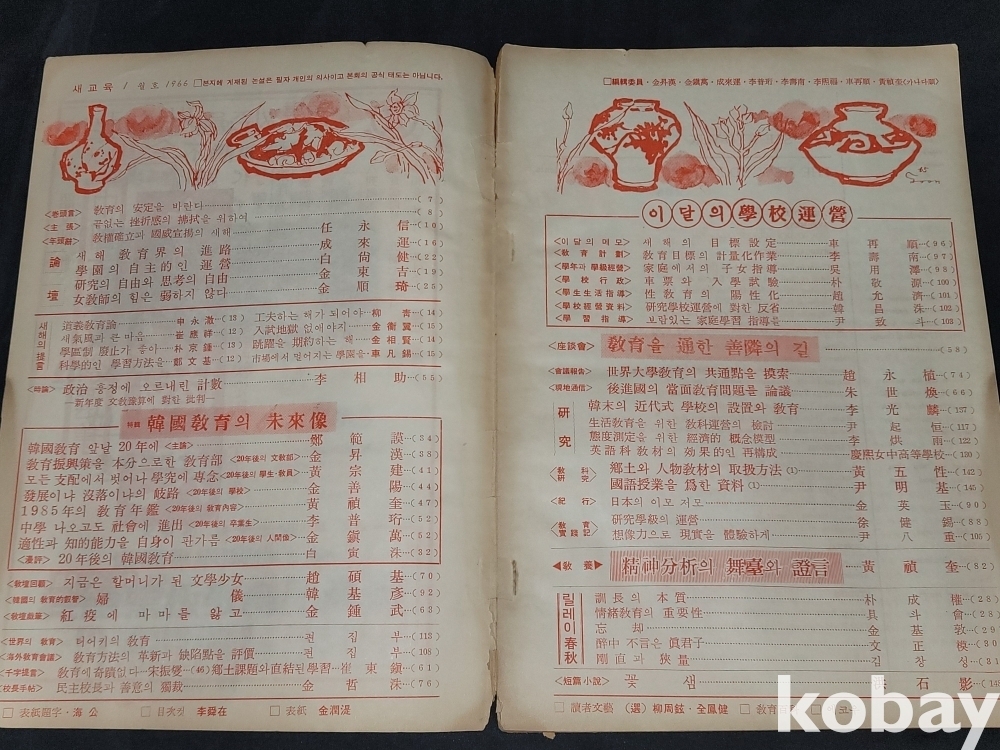 새교육 1월호 1966 □본지에 게재된 논설은 필자 개인의 의사이고 본회의 공식 태도는 아닙니다.
<卷頭言> 敎育의 安定을 바란다 (7)
<主張> 끝없는 挫折感의 拂拭을 위하여 (8)
<年頭辭> 敎權確立과 國威宣揚의 새해 任永信 (10)
論壇
새해 敎育界의 進路 成來運 (16)
學園의 自主的인 運營 白尙健 (22)
硏究의 自由와 思考의 自由 金東吉 (19)
女敎師의 힘은 弱하지 않다 金順琦 (25)
새해의 提言
道義敎育論 申永澈 (13)
새氣風과 큰 마음 崔應祥 (12)
學區制 廢止가 좋아 朴京鍾 (13)
科學的인 學習方法을 鄭文基 (12)
工夫하는 해가 되어야 柳靑 (14)
入試地獄 없애야지 金衡翼 (15)
跳躍을 期約하는 해 金相賢 (14)
市場에서 멀어지는 學園을 車凡錫 (15)
<時論> 政治 흥정에 오르내린 計數 李相助 (55)
―新年度 文敎豫算에 對한 批判―
特輯 韓國敎育의 未來像
韓國敎育 앞날 20年에 <主論> 鄭範謨 (34)
敎育振興策을 本分으로한 敎育部 <20年後의 文敎部> 金昇漢 (38)
모든 支配에서 벗어나 學究에 專念 <20年後의 學生·敎員> 黃宗建 (41)
發展이냐 沒落이냐의 岐路 <20年後의 學校> 金善陽 (44)
1985年의 敎育年鑑 <20年後의 敎育內容> 黃禎奎 (47)
中學 나오고도 社會에 進出 <20年後의 卒業生> 李普珩 (52)
適性과 知的能力을 自身이 판가름 <20年後의 人間像> 金鎭萬 (52)
20年後의 韓國敎育 白寅洙 (32)
<敎壇回顧> 지금은 할머니가 된 文學少女 趙碩基 (70)
婦儀 韓基彦 (92)
紅疫에 마마를 앓고 金鍾武 (63)
<世界의 敎育> 터어키의 敎育 편집부 (113)
<海外敎育會議> 敎育方法의 革新과 缺陷點을 評價 편집부 (108)
<千字提言> 敎育에 奇蹟없다 宋振燮 (46) 鄕土課題와 直結된 學習 崔東鎭 (61)
<校長手帖> 民主校長과 善意의 獨裁 金哲洙 (76)
□表紙題字·海公 □目次컷 李舜在 □表紙 金潤湜
□編輯委員·金外漢·金鎭萬·成來運·李普珩·李壽南·李熙福·車再顯·黃禎奎(가나다順)
이달의 學校運營
<이달의 메모> 새해의 目標設定 車再顯 (96)
<敎育計劃> 敎育目標의 計量化作業 李壽南 (97)
<學年과 學級經營> 家庭에서의 子女指導 吳用澤 (98)
<學校行政> 車票와 入學試驗 朴敬源 (100)
<學生生活指導> 性敎育의 陽性化 趙允濟 (101)
<學校經營資料> 硏究學校運營에 對한 反省 韓昌洙 (102)
<學習指導> 보람있는 家庭學習 指導을 尹致斗 (103)
<座談會> 敎育을 通한 善隣의 길 (58)
<會議報告> 世界大學敎育의 共通點을 摸索 趙永植 (74)
<現地通信> 後進國의 當面敎育問題를 論議 朱世煥 (66)
硏究
韓末의 近代式 學校의 設置와 敎育 李光麟 (137)
生活敎育을 위한 敎科運營의 檢討 尹起恒 (117)
態度測定을 위한 經濟的 槪念模型 李烘雨 (122)
英語科 敎材의 効果的인 再構成 慶熙女中高等學校 (133)
<敎科硏究> 鄕土와 人物敎材의 取扱方法(1) 黃五性 (142)
國語授業을 爲한 資料(1) 尹明基 (145)
<紀行> 日本의 이모저모 金英玉 (90)
<敎育實踐記> 硏究學級의 運營 徐健錫 (88)
想像力으로 現實을 體驗하게 尹八重 (105)
◀敎養▶ 精神分析의 舞臺와 證言 黃禎奎 (82)
릴레이春秋
訓長의 本質 朴成權 (28)
情緖敎育의 重要性 具斗會 (28)
忘却 金基敦 (29)
醉中不言은 眞君子 文正模 (30)
剛直과 狹量 김창성 (31)
<短篇小說> 꽃샘 石影
□讀者文藝 (選) 柳周鉉·全鳳健
kobay